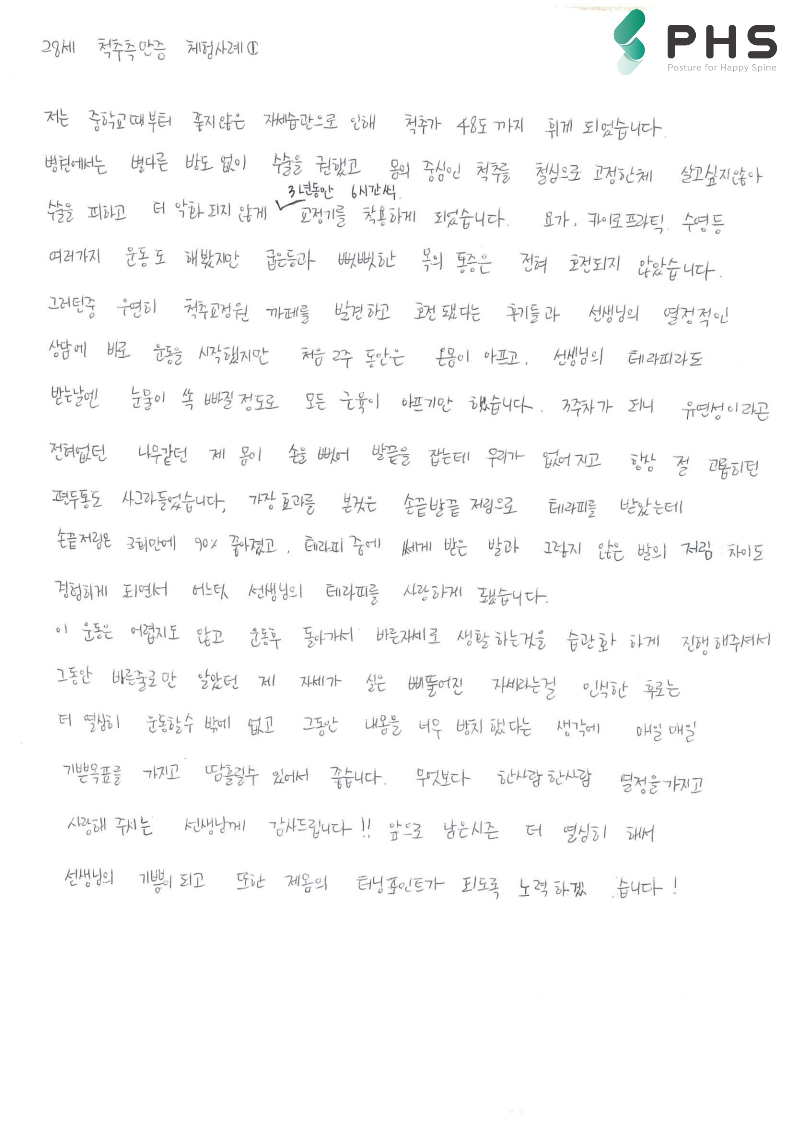 28세 척추측만증 체험사례①
PHS
Posture for Happy Spine
저는 중학교때부터 좋지않은 자세습관으로 인해 척추가 48도까지 휘게 되었습니다.
병원에서는 별다른 방도 없이 수술을 권했고 몸의 중심인 척추를 철심으로 고정한체 살고싶지않아
3년동안 6시간씩.
수술을 피하고 더 악화되지 않게 ✓ 교정기를 착용하게 되었습니다. 요가, 카이로프라틱, 수영등
여러가지 운동도 해봤지만 굽은등과 뻣뻣한 목의 통증은 전혀 호전되지 않았습니다.
그러던중 우연히 척추교정원 까페를 발견하고 호전됐다는 후기들과 선생님의 열정적인
상담에 바로 운동을 시작했지만 처음 2주 동안은 온몸이 아프고, 선생님의 테라피라도
받는날엔 눈물이 쏙 빠질정도로 모든 근육이 아프기만 했습니다. 3주차가 되니 유연성이라곤
전혀없던 나무같던 제 몸이 손을 뻗어 발끝을 잡는데 무리가 없어지고 항상 절 괴롭히던
편두통도 사그라들었습니다, 가장 효과를 본것은 손끝발끝 저림으로 테라피를 받았는데
손끝저림은 3회만에 90% 좋아졌고, 테라피 중에 쎄게 받은 발과 그렇지 않은 발의 저림 차이도
경험하게 되면서 어느덧 선생님의 테라피를 사랑하게 됐습니다.
이 운동은 어렵지도 않고 운동후 돌아가서 바른자세로 생활하는것을 습관화 하게 진행해주셔서
그동안 바른줄로만 알았던 제 자세가 실은 삐뚤어진 자세라는걸 인식한 후로는
더 열심히 운동할수 밖에 없고 그동안 내몸을 너무 방치했다는 생각에 매일매일
기쁜목표를 가지고 땀흘릴수 있어서 좋습니다. 무엇보다 한사람한사람 열정을가지고
사랑해 주시는 선생님께 감사드립니다!! 앞으로 남은시즌 더 열심히 해서
선생님의 기쁨이되고 또한 제몸의 터닝포인트가 되도록 노력하겠습니다!